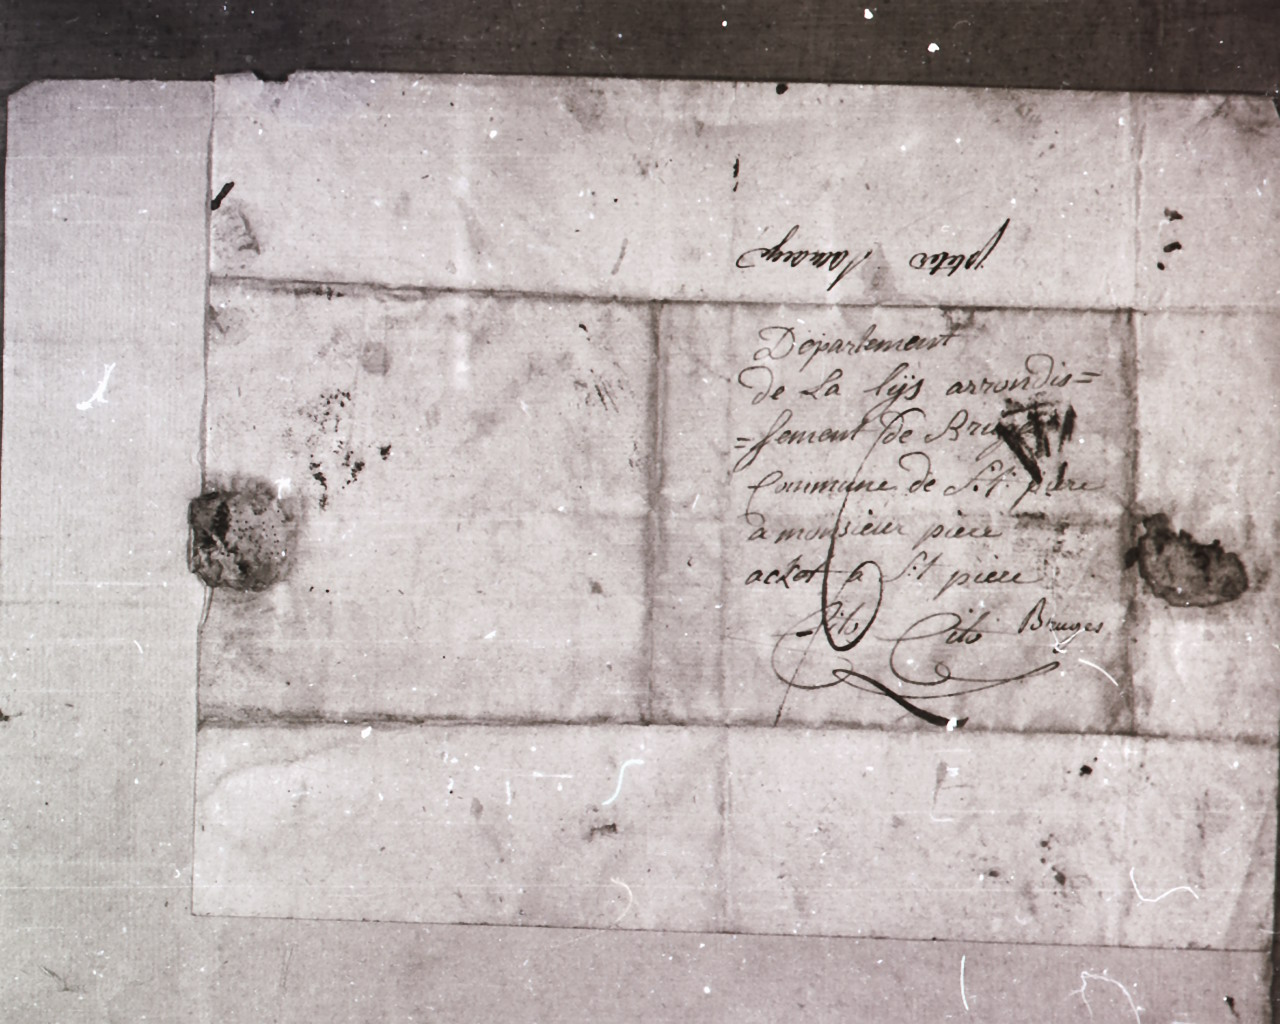 Departement
de La lijs arrondis=
=sement de Bruges
Commune de S.t piere
a monsieur piere
ackot a S:t piere
Cito Cito Bruges